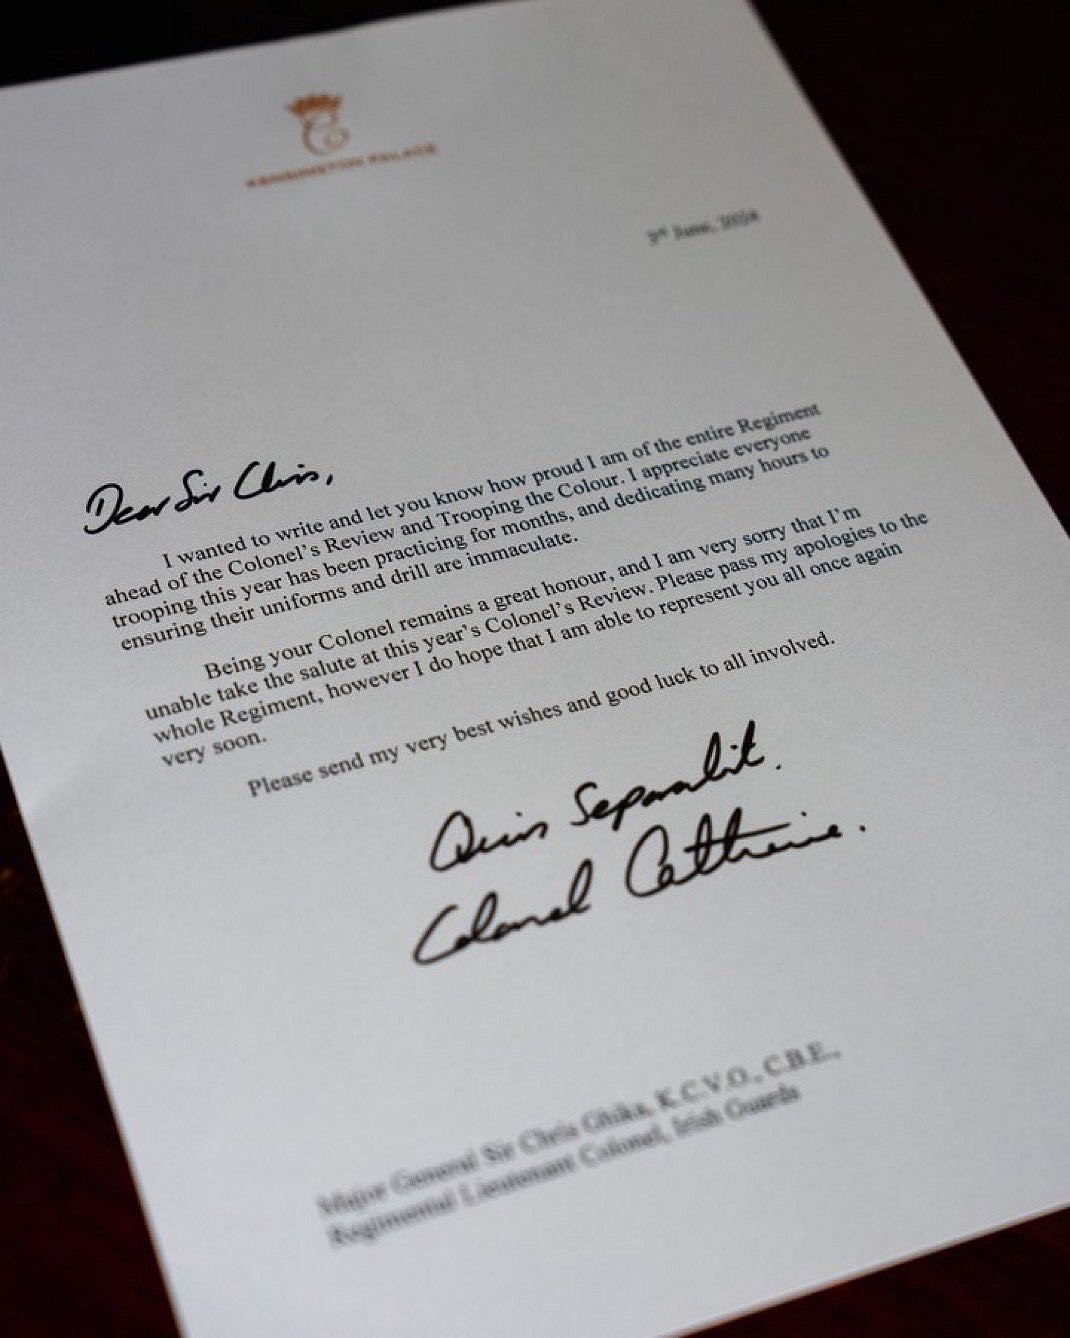 KENSINGTON PALACE
3rd June, 2024
Dear Sir Chris,
I wanted to write and let you know how proud I am of the entire Regiment
ahead of the Colonel's Review and Trooping the Colour. I appreciate everyone
trooping this year has been practicing for months, and dedicating many hours to
ensuring their uniforms and drill are immaculate.
Being your Colonel remains a great honour, and I am very sorry that I'm
unable take the salute at this year's Colonel's Review. Please pass my apologies to the
whole Regiment, however I do hope that I am able to represent you all once again
very soon.
Please send my very best wishes and good luck to all involved.
Quis Separabit.
Colonel Catherine.
Major General Sir Chris Ghika, K.C.V.O., C.B.E.,
Regimental Lieutenant Colonel, Irish Guards